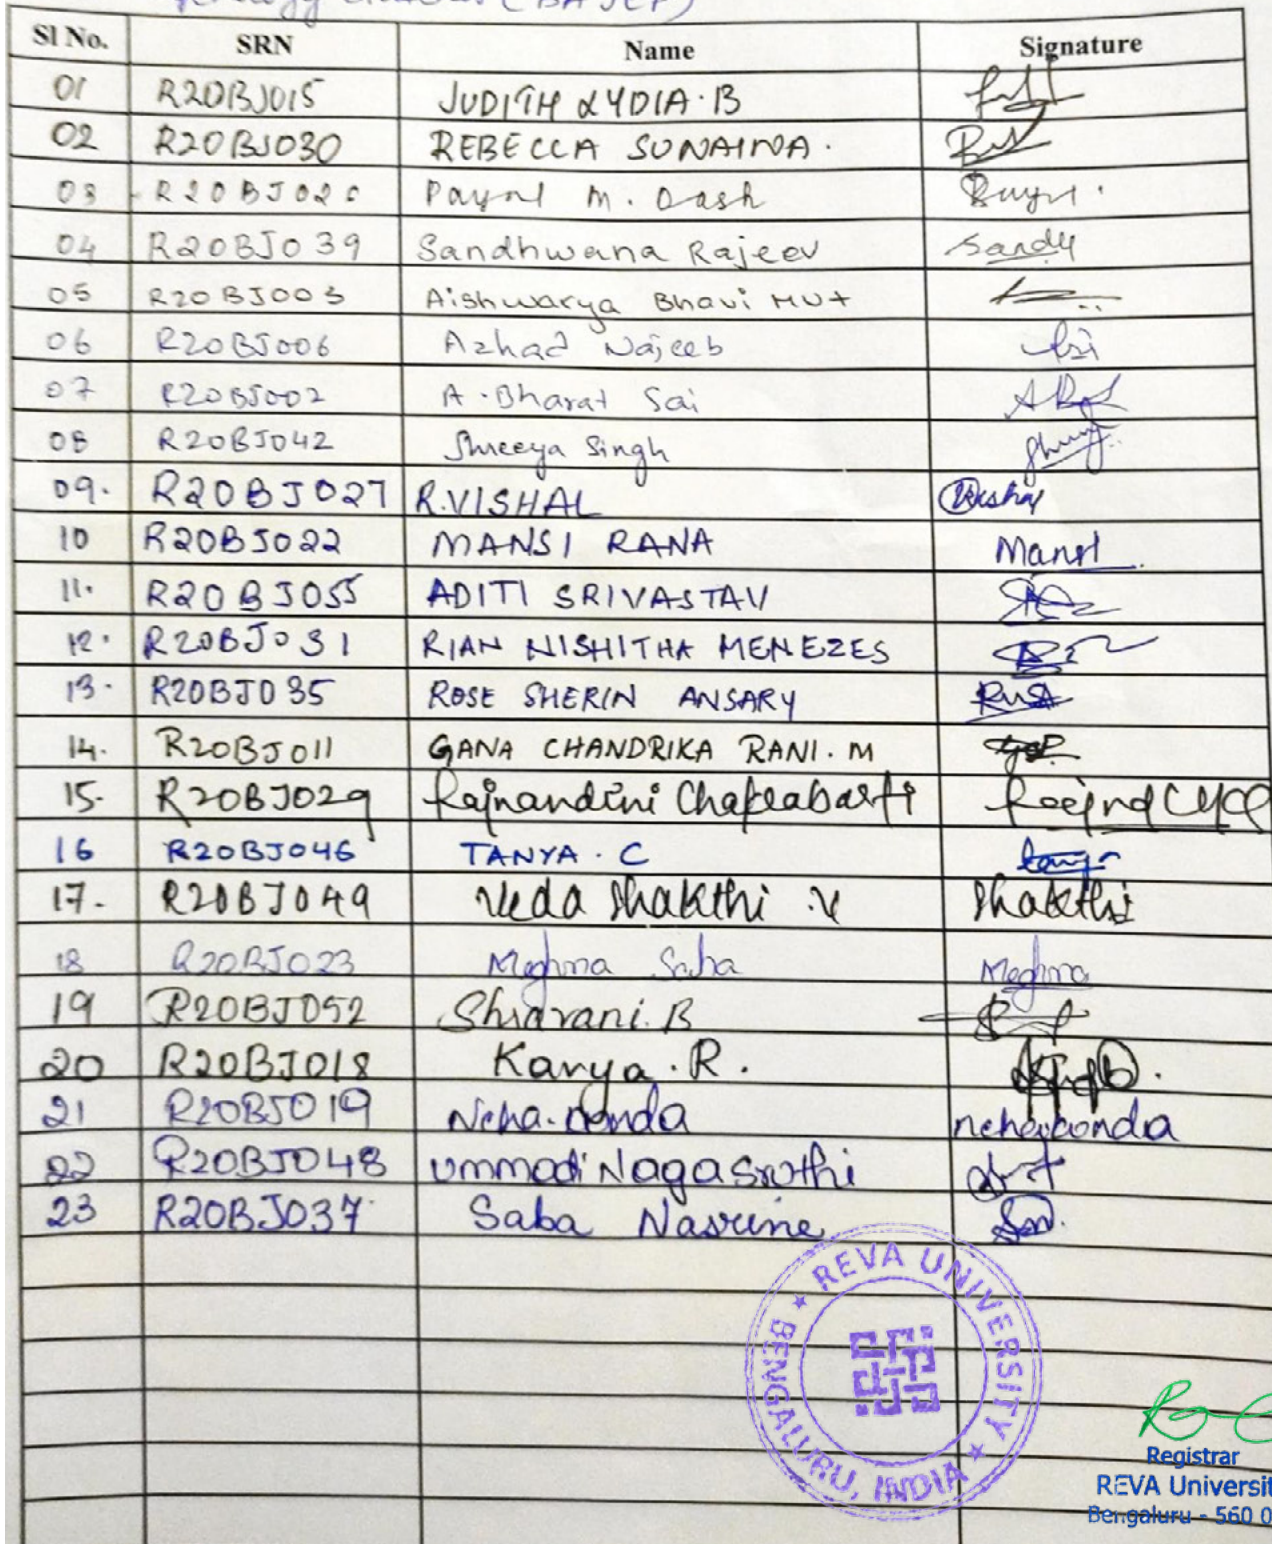 (BAJEP)
Sl No. SRN Name Signature
01 R20BJ015 JUDITH LYDIA. B
02 R20BJ030 REBECCA SUNAINA.
03 R20BJ026 Payal M. Dash
04 R20BJ039 Sandhwana Rajeev Sandy
05 R20BJ003 Aishwarya Bhavi Mut
06 R20BJ006 Azhad Najeeb
07 R20BJ002 A. Bharat Sai
08 R20BJ042 Shreeya Singh
09. R20BJ027 R.VISHAL Vishal
10 R20BJ022 MANSI RANA Mansi
11. R20BJ055 ADITI SRIVASTAV
12. R20BJ031 RIAN NISHITHA MENEZES
13. R20BJ035 ROSE SHERIN ANSARY
14. R20BJ011 GANA CHANDRIKA RANI. M
15. R20BJ029 Rajnandini Chakrabarti
16 R20BJ046 TANYA. C
17. R20BJ049 Veda Shakthi .V Shakthi
18 R20BJ023 Meghna Saha Meghna
19 R20BJ052 Shravani. B
20 R20BJ018 Kavya. R.
21 R20BJ019 Neha. nonda
22 R20BJ048 Ummadi Naga Sruthi
23 R20BJ037 Saba Nasrine
REVA UNIVERSITY
BENGALURU, INDIA
Registrar
REVA Universit
Bengaluru - 560 0